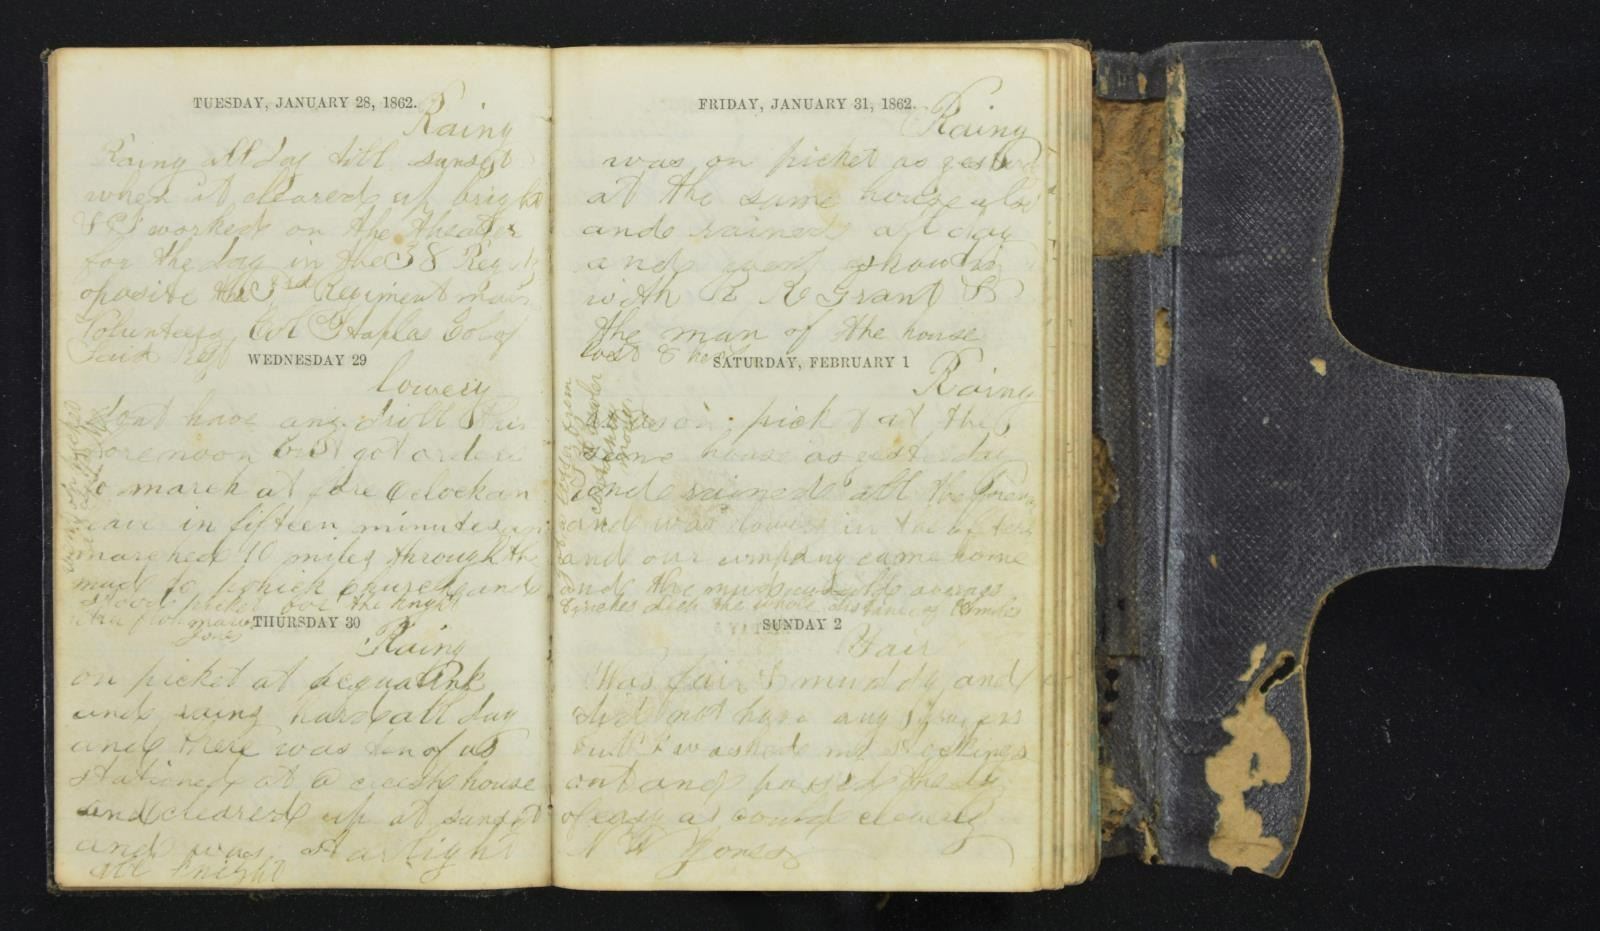 TUESDAY, JANUARY 28, 1862.
Rainy
Rainy all day till sunset
when it cleared up bright
& I worked on the theater
for the day in the 38 Reg
oposite the 3rd Regiment main
Volunteers, Col Staples Col of
Said Regt
WEDNESDAY 29
lowery
dont have any drill this
forenoon but got orders
to march at fore oclock an
in fifteen minutes an
marched 10 miles through the
mud to pohick church and
stood picket for the knight
Jones
THURSDAY 30
Rainy
on picket at
and rainy hard all day
and there was ten of us
stationed at a house
and cleared up at sunset
and was starlight
all knight
FRIDAY, JANUARY 31, 1862.
Rainy
was on picket as yesterd
at the same house also
and rained all day
and went
with R K Grant &
the man of the house
lost
SATURDAY, FEBRUARY 1
Rainy
was on picket at the
same house as yesterday
and rained all the foren
and was lowery in the aftern
and our company came home
and the mud would averag
inches deep the whole distance of miles
SUNDAY 2
Fair
Was fair & muddy and
did not have any prayers
but I washed my stockings
out and passed the day
of easy as could cleverly
N W Jones